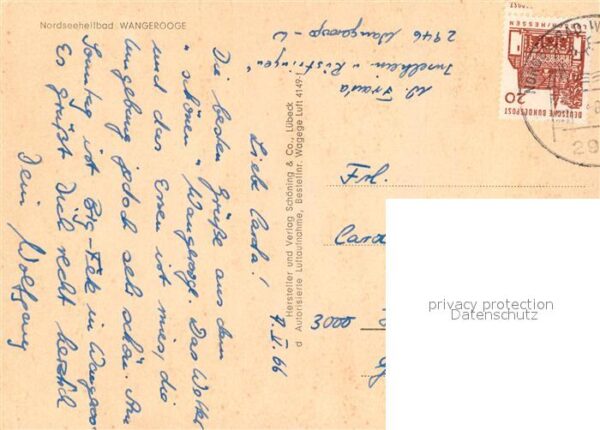 Nordseeheilbad WANGEROOGE
Liebe Carda!
Die besten Grüße aus dem
"schönen" Wangerooge. Das Wetter
und das Essen ist mies, die
Umgebung jedoch sehr schön. Am
Sonntag ist Big-Fete in Wangeroo
Es grüßt Dich recht herzlich
Dein Wolfgang
Hersteller und Verlag Schöning & Co., Lübeck
d Autorisierte Luftaufnahme, Bestellnr. Wagege Luft 4149-1
Inselheim
2946 Wangerooge
20
DEUTSCHE BUNDESPOST
HESSEN
29
Frl.
Card
3000
66
privacy protection
Datenschutz